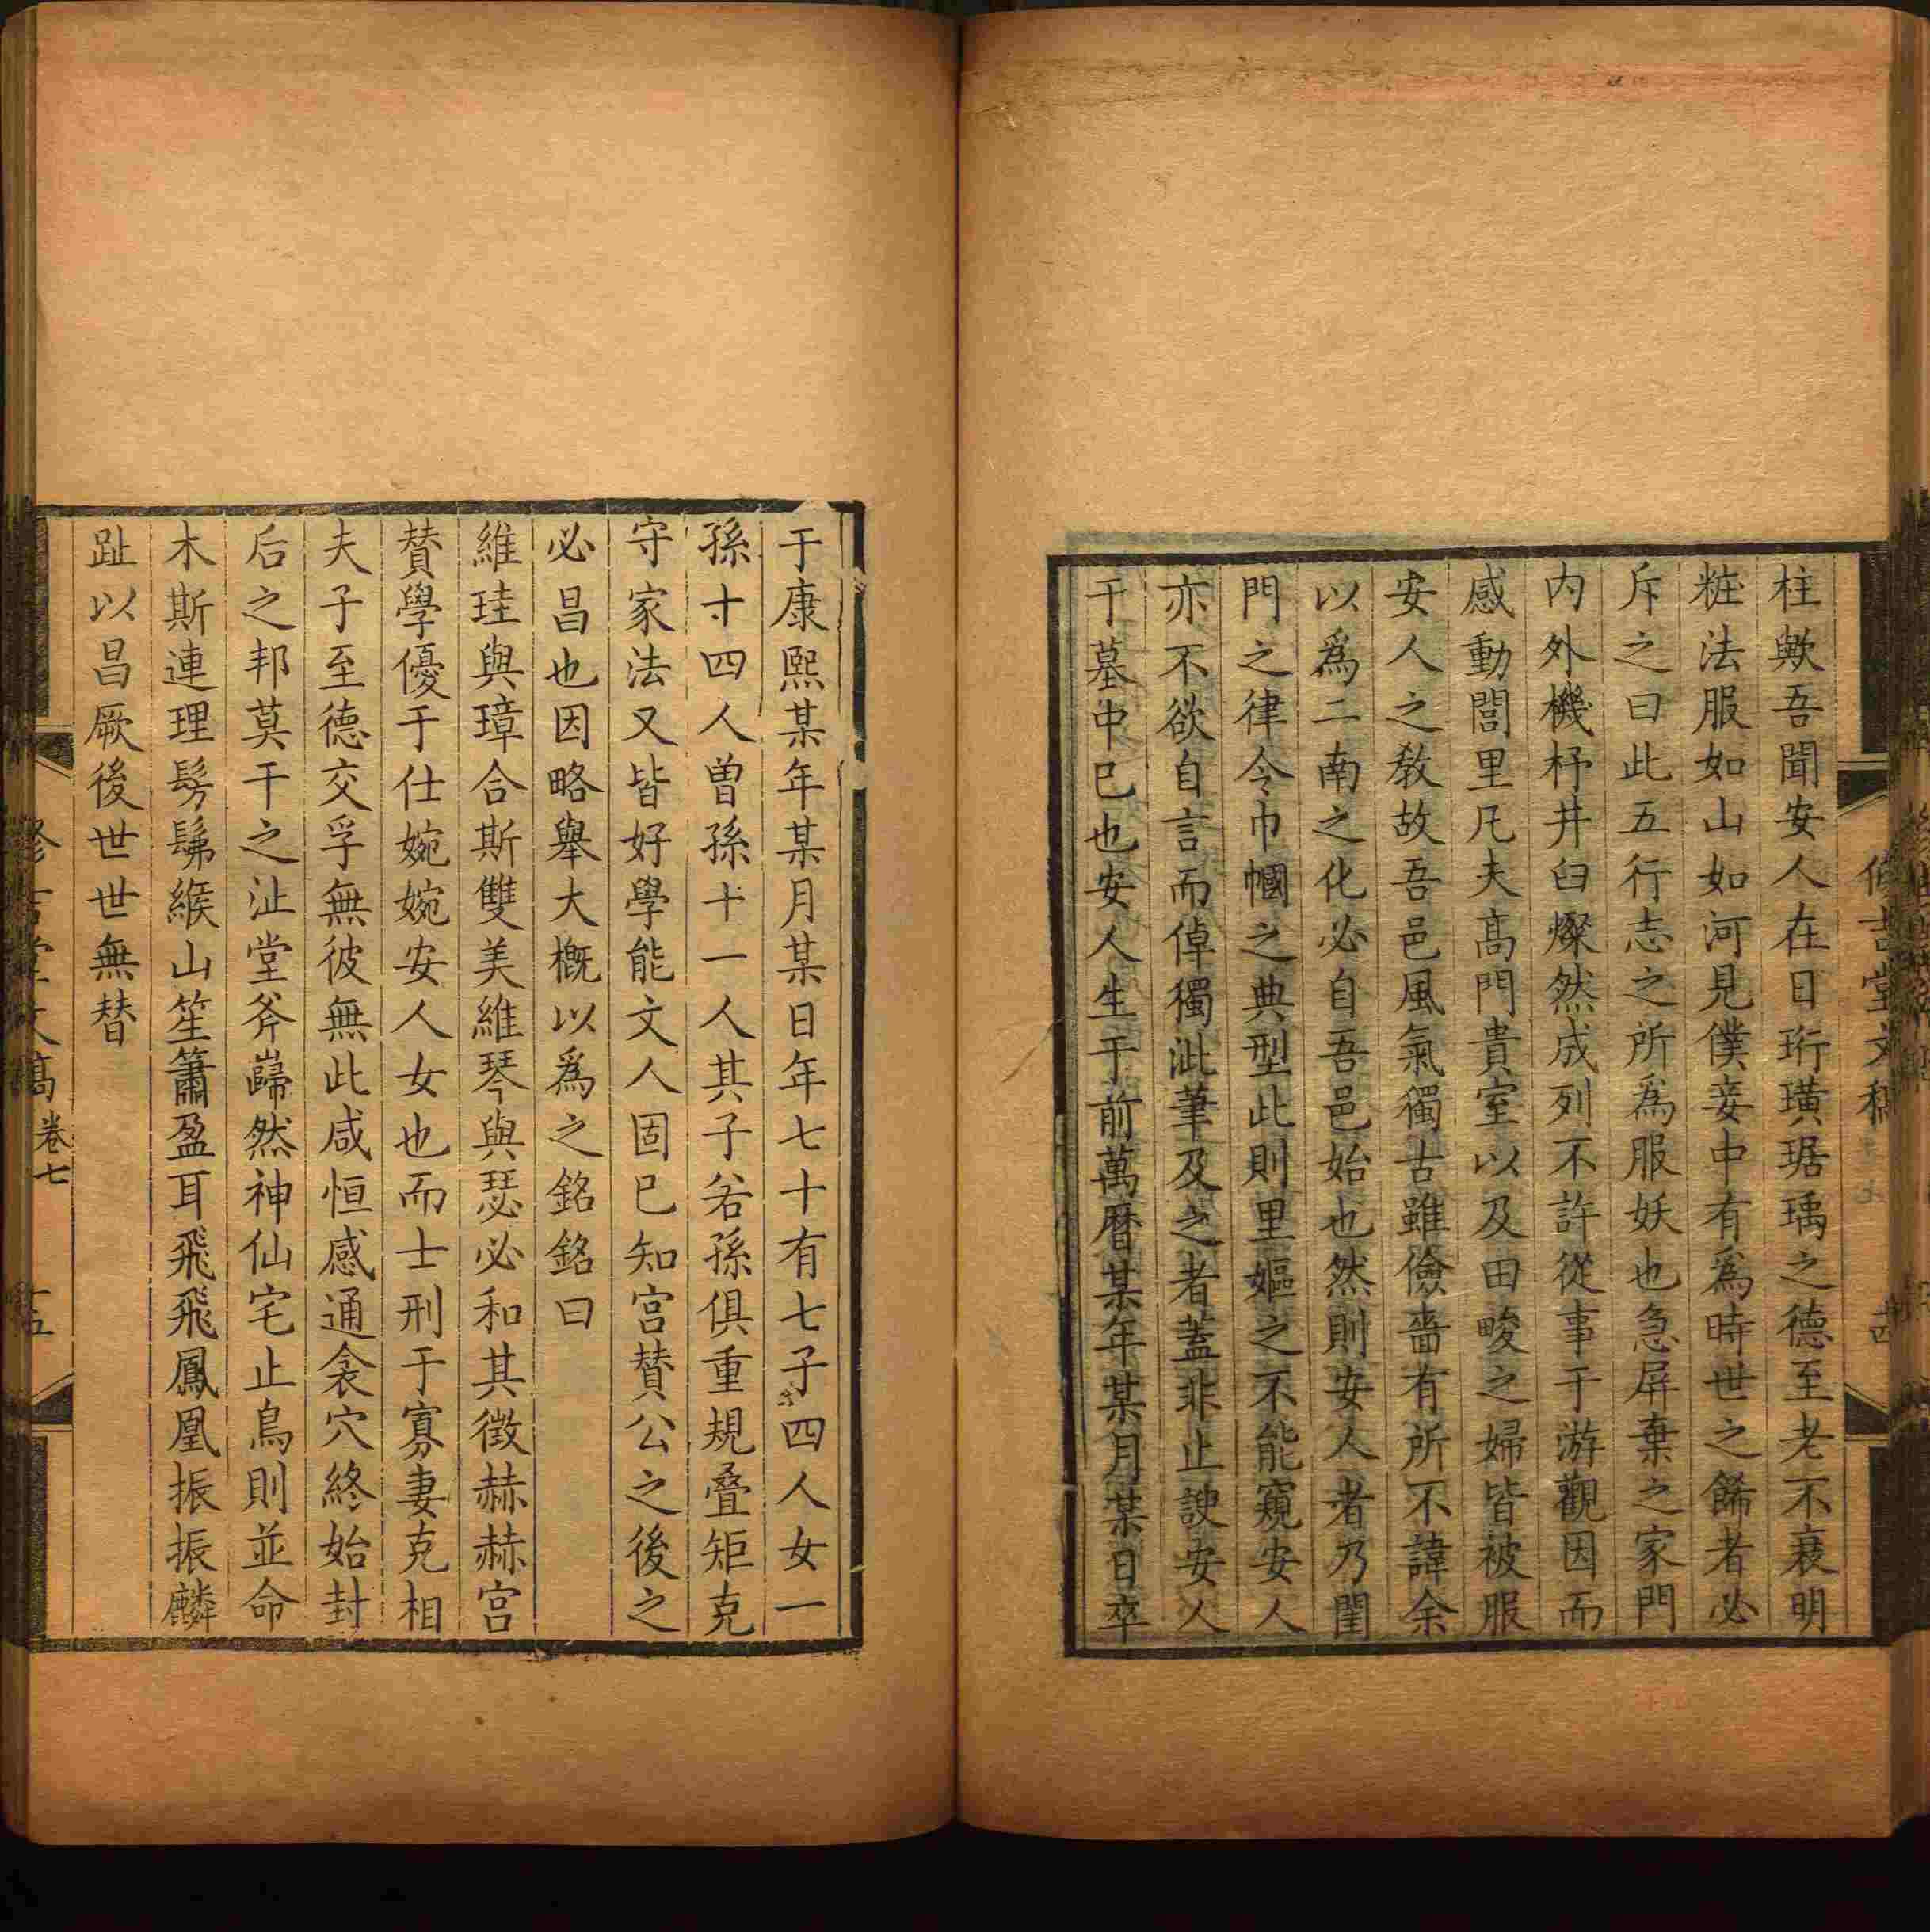 柱歟吾聞安人在日珩璜琚瑀之德至老不衰明
粧法服如山如河見僕妾中有爲時世之餙者必
斥之曰此五行志之所爲服妖也急屏棄之家門
内外機杼井臼燦然成列不許從事于游觀因而
感動閭里凡夫髙門貴室以及田畯之婦皆被服
安人之教故吾邑風氣獨古雖儉嗇有所不諱余
以爲二南之化必自吾邑始也然則安人者乃閨
門之律令巾幗之典型此則里嫗之不能窺安人
亦不欲自言而倬獨泚筆及之者蓋非止諛安人
于墓中已也安人生于前萬曆某年某月某日卒
于康熙某年某月某日年七十有七子四人女一
孫十四人曾孫十一人其子若孫俱重規叠矩克
守家法又皆好學能文人固已知宫賛公之後之
必昌也因略舉大概以爲之銘銘曰
維珪與璋合斯雙美維琴與瑟必和其徵赫赫宫
賛學優于仕婉婉安人女也而士刑于寡妻克相
夫子至德交孚無彼無此咸恒感通衾穴終始封
后之邦莫干之沚堂斧巋然神仙宅止鳥則並命
木斯連理髣髴緱山笙簫盈耳飛飛鳳凰振振麟
趾以昌厥後世世無替
修吉堂文稿
卷七